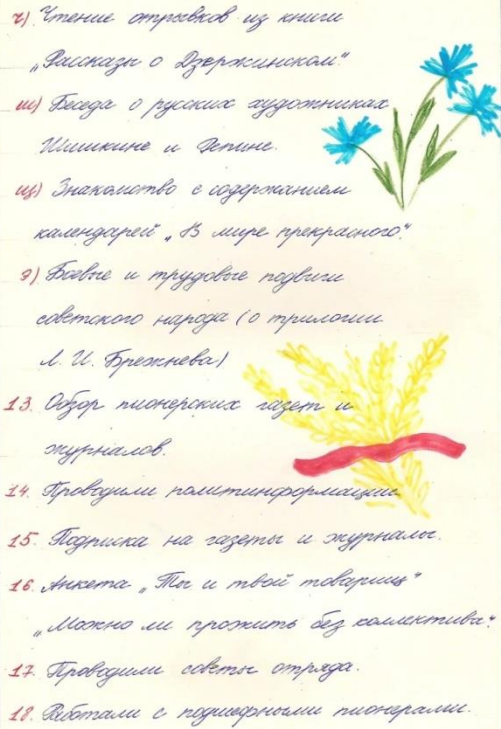 ч) Чтение отрывков из книги
„Рассказы о Дзержинском"
ш) Беседа о русских художниках
Шишкине и Репине.
щ) Знакомство с содержанием
календарей „В мире прекрасного".
э) Боевые и трудовые подвиги
советского народа (о трилогии
Л. И. Брежнева)
13. Обзор пионерских газет и
журналов.
14. Проводили политинформации.
15. Подписка на газеты и журналы.
16. Анкета „Ты и твой товарищ"
„Можно ли прожить без коллектива".
17. Проводили советы отряда.
18. Работали с подшефными пионерами.